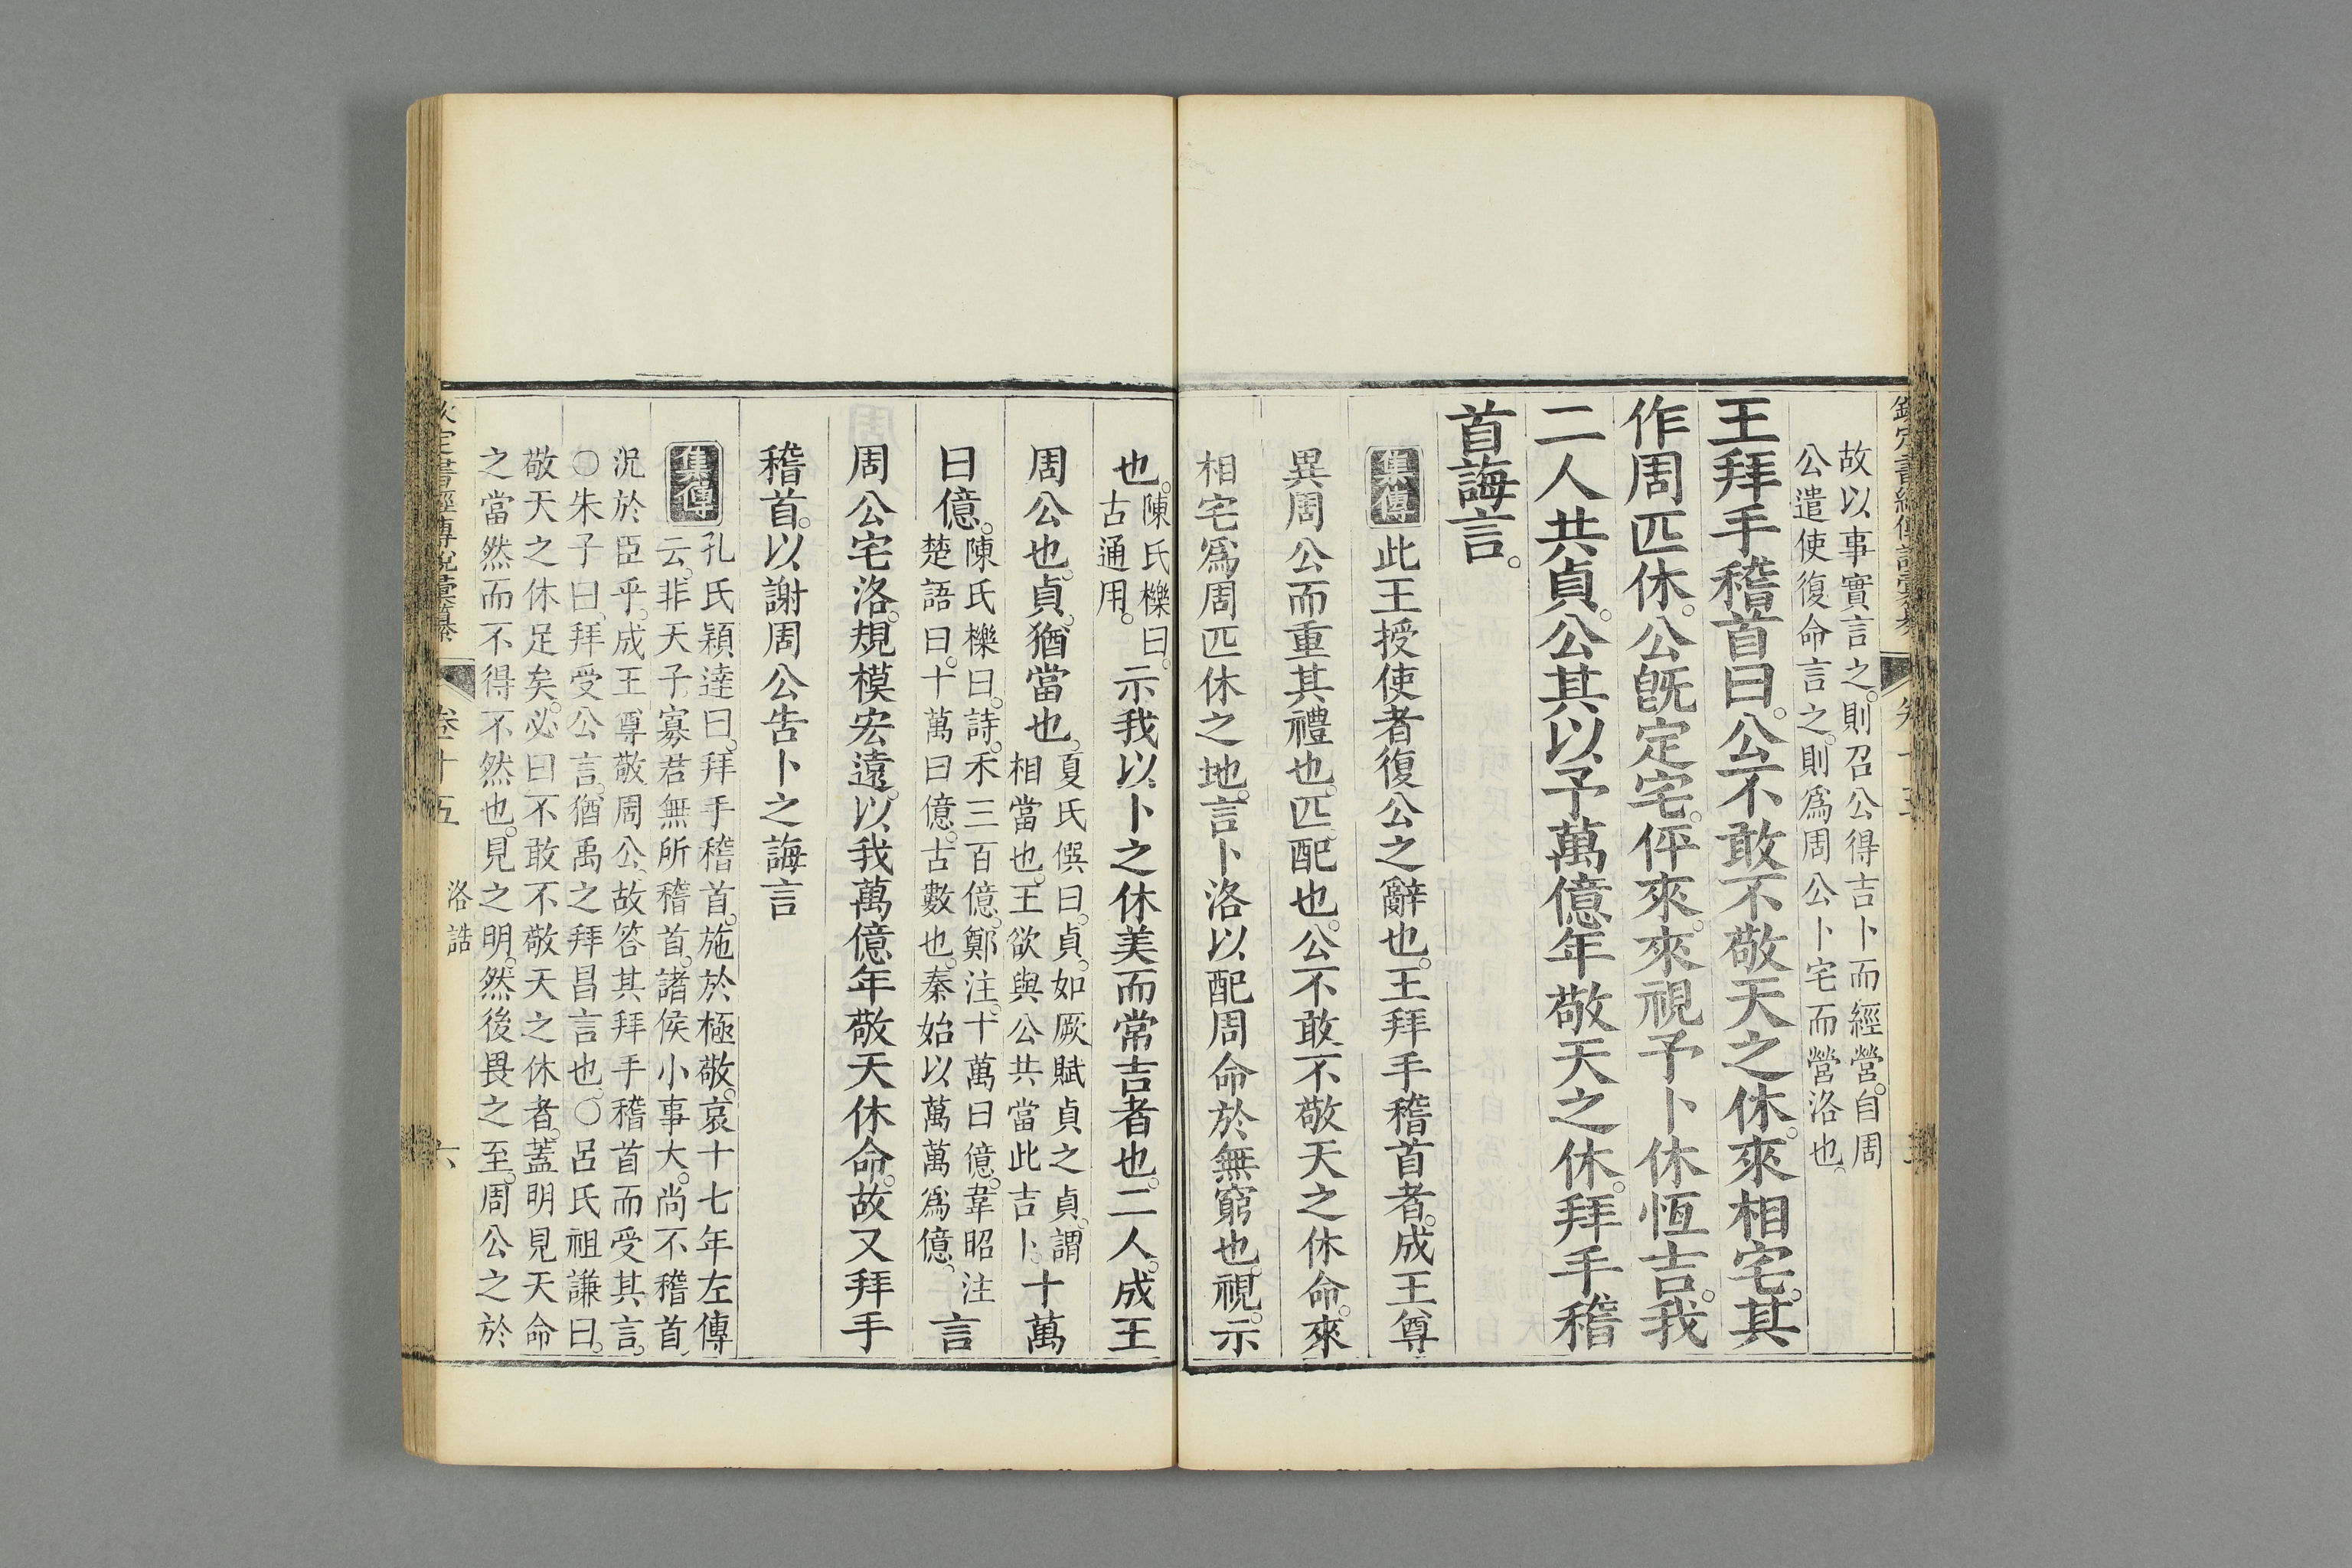 故以事實言之。則召公得吉卜而經營。自周
公遣使復命言之。則爲周公卜宅而營洛也。
王拜手稽首曰。公不敢不敬天之休。來相宅。其
作周匹休。公旣定宅。伻來。來視予卜休恆吉。我
二人共貞。公其以予萬億年敬天之休。拜手稽
首誨言。
集傳 此王授使者復公之辭也。王拜手稽首者。成王尊
異周公而重其禮也。匹。配也。公不敢不敬天之休命。來
相宅。爲周匹休之地。言卜洛以配周命於無窮也。視。示
也。陳氏櫟曰。
古通用。
示我以卜之休美而常吉者也。二人。成王
周公也。貞。猶當也。
夏氏僎曰。貞。如厥賦貞之貞。謂
相當也。王欲與公共當此吉卜。
十萬
曰億。
陳氏櫟曰。詩。禾三百億。鄭注。十萬曰億。韋昭注
楚語曰。十萬曰億。古數也。秦始以萬萬爲億。
言
周公宅洛。規模宏遠。以我萬億年敬天休命。故又拜手
稽首。以謝周公告卜之誨言
集傳
孔氏穎達曰。拜手稽首。施於極敬。哀十七年左傳
云。非天子寡君無所稽首。諸侯小事大。尚不稽首。
況於臣乎。成王尊敬周公。故答其拜手稽首而受其言。
○朱子曰。拜受公言。猶禹之拜昌言也。○呂氏祖謙曰。
敬天之休足矣。必曰不敢不敬天之休者。蓋明見天命
之當然而不得不然也。見之明。然後畏之至。周公之於
欽定書經傳說彙纂 卷十五 洛誥 六